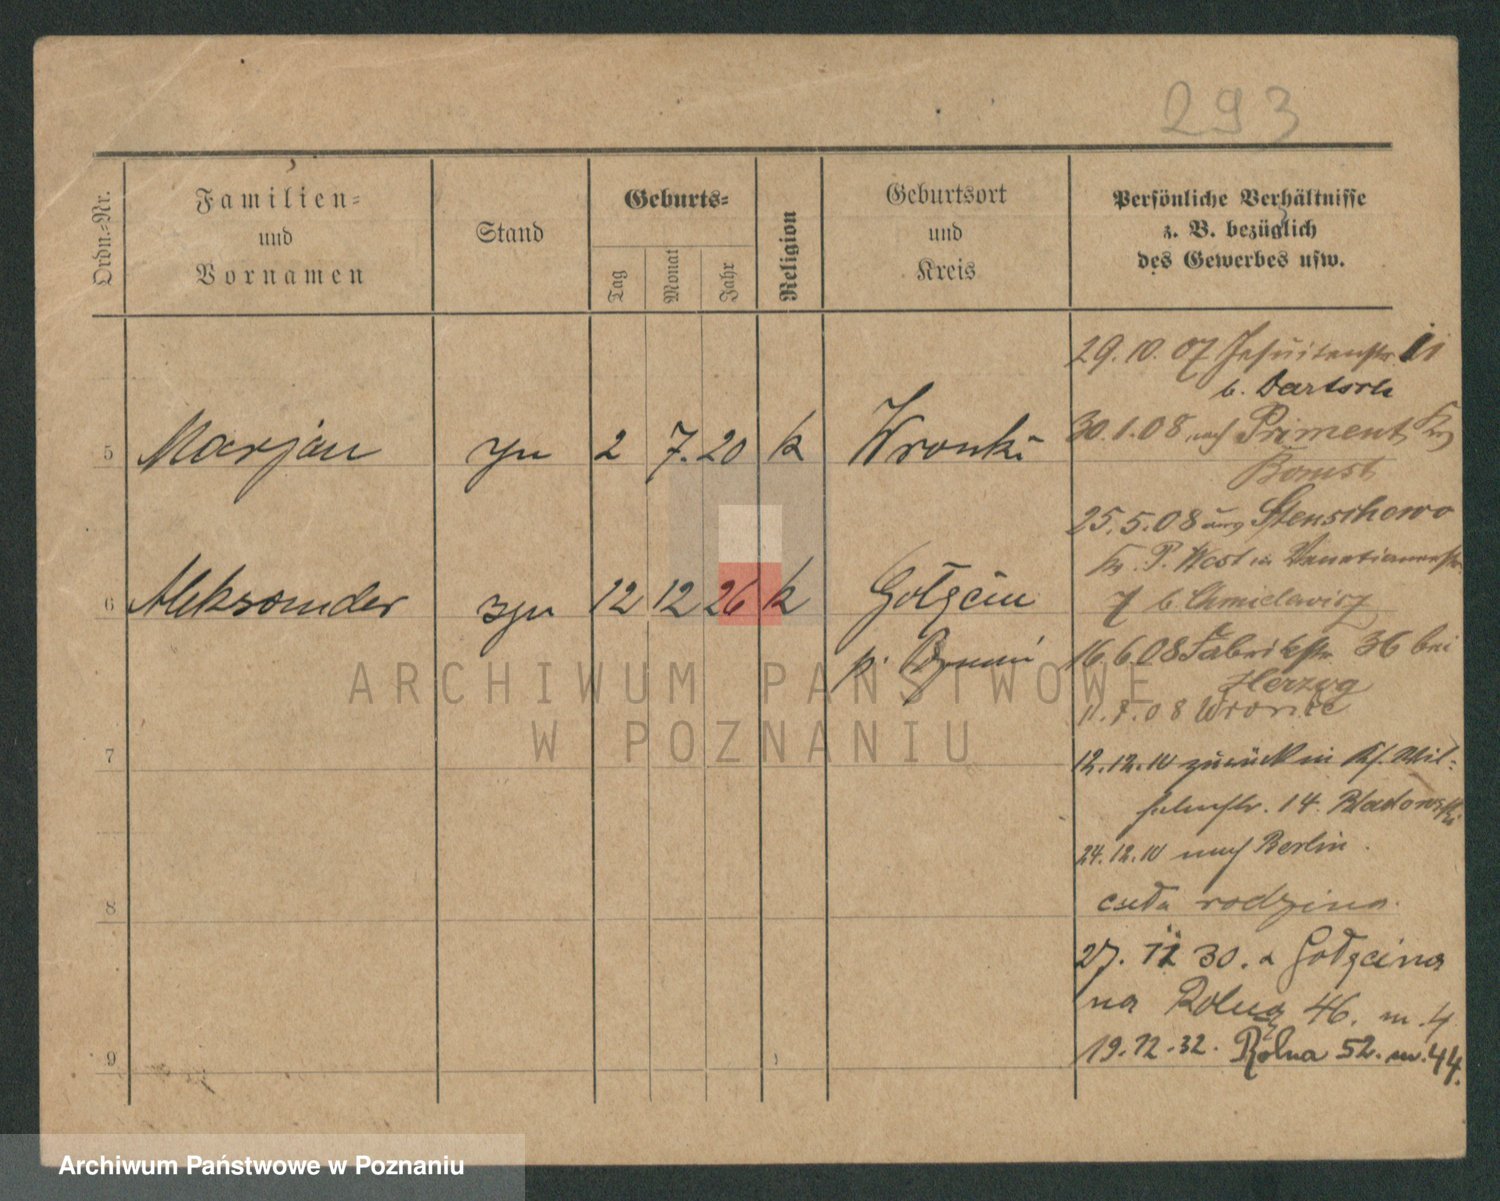 293
Ordn.-Nr.
Familien-
und
Vornamen
Stand
Geburts-
Tag
Monat
Jahr
Religion
Geburtsort
und
Kreis
Persönliche Verhältnisse
z. B. bezüglich
des Gewerbes usw.
5 Marjan syn 2 7. 20 k Wronki
6 Aleksander syn 12 12 26 k Gołęcin
p.
7
8
9
29.10.07 Jesuitenstr. 11
b. Bartsch
30.1.08 nach Priment, Kr
Bomst
25.5.08 aus Stenschewo
Kr. P. West in
7 b. Chmielewicz
16.6.08 Fabrikstr 36 bei
Herzog
11.7.08 Wronke
12.12.10 zurück in Kf. Wil-
helmstr. 14.
24.12.10 nach Berlin.
cała rodzina.
27. 11 30. z Gołęcina
na Rolną 46. m. 4
19.12.32. Rolna 52. m. 44.
ARCHIWUM PAŃSTWOWE
W POZNANIU
Archiwum Państwowe w Poznaniu